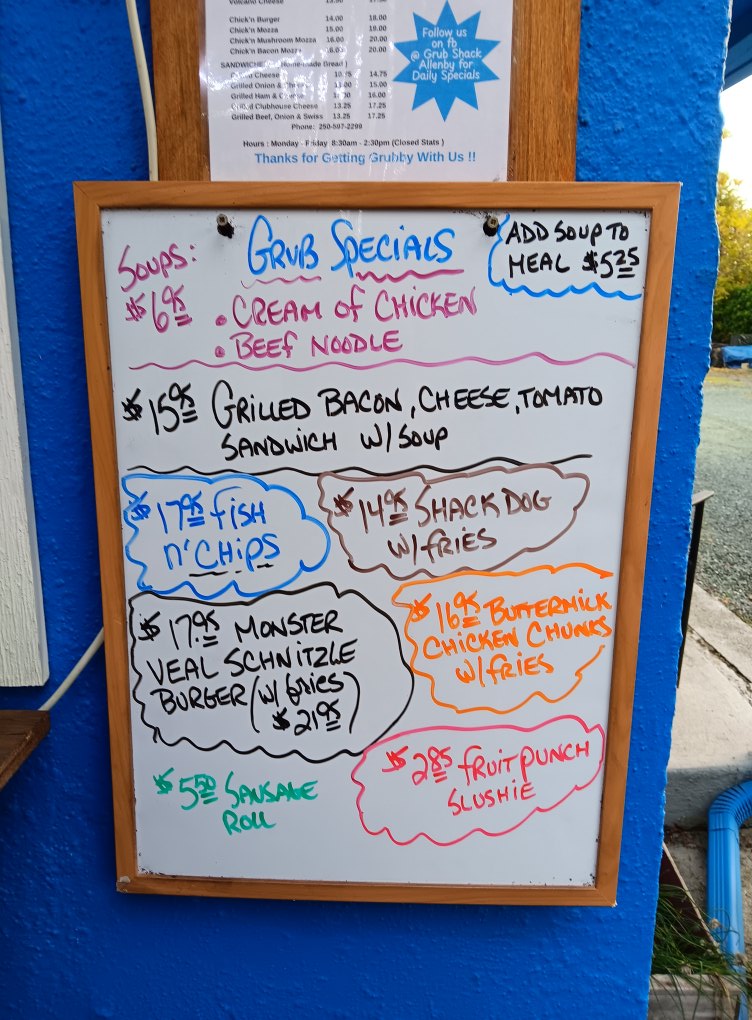 Volcano Cheese
Chick'n Burger 14.00 18.00
Chick'n Mozza 15.00 19.00
Chick'n Mushroom Mozza 16.00 20.00
Chick'n Bacon Mozza 20.00
Cheese 14.75
Grilled Onion & 15.00
Grilled Ham & 16.00
Grilled Clubhouse Cheese 13.25 17.25
Grilled Beef, Onion & Swiss 13.25 17.25
Phone: 250-597-2299
Hours : Monday - Friday 8:30am - 2:30pm (Closed Stats )
Thanks for Getting Grubby With Us !!
Follow us
on fb
@ Grub Shack
Allenby for
Daily Specials
GRUB SPECIALS
ADD SOUP TO
MEAL $5.25
SOUPS:
$6.95 • CREAM OF CHICKEN
• BEEF NOODLE
$15.95 GRILLED BACON, CHEESE, TOMATO
SANDWICH W/ SOUP
$17.95 FISH
N' CHIPS
$14.95 SHACK DOG
W/ FRIES
$17.95 MONSTER
VEAL SCHNITZLE
BURGER (W/ FRIES
$21.95)
$16.95 BUTTERMILK
CHICKEN CHUNKS
W/ FRIES
$5.50 SAUSAGE
ROLL
$2.85 FRUIT PUNCH
SLUSHIE